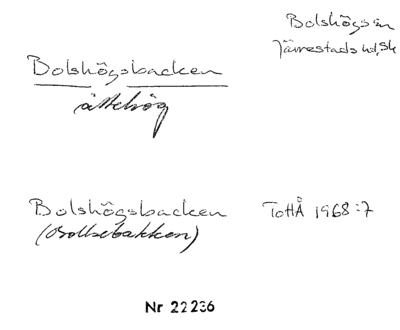 Bolshögs sn
Järrestads hd, Sk
Bolshögsbacken
ättehög
Bolshögsbacken ToHÅ 1968:7
(Bollsebakken)
Nr 22236